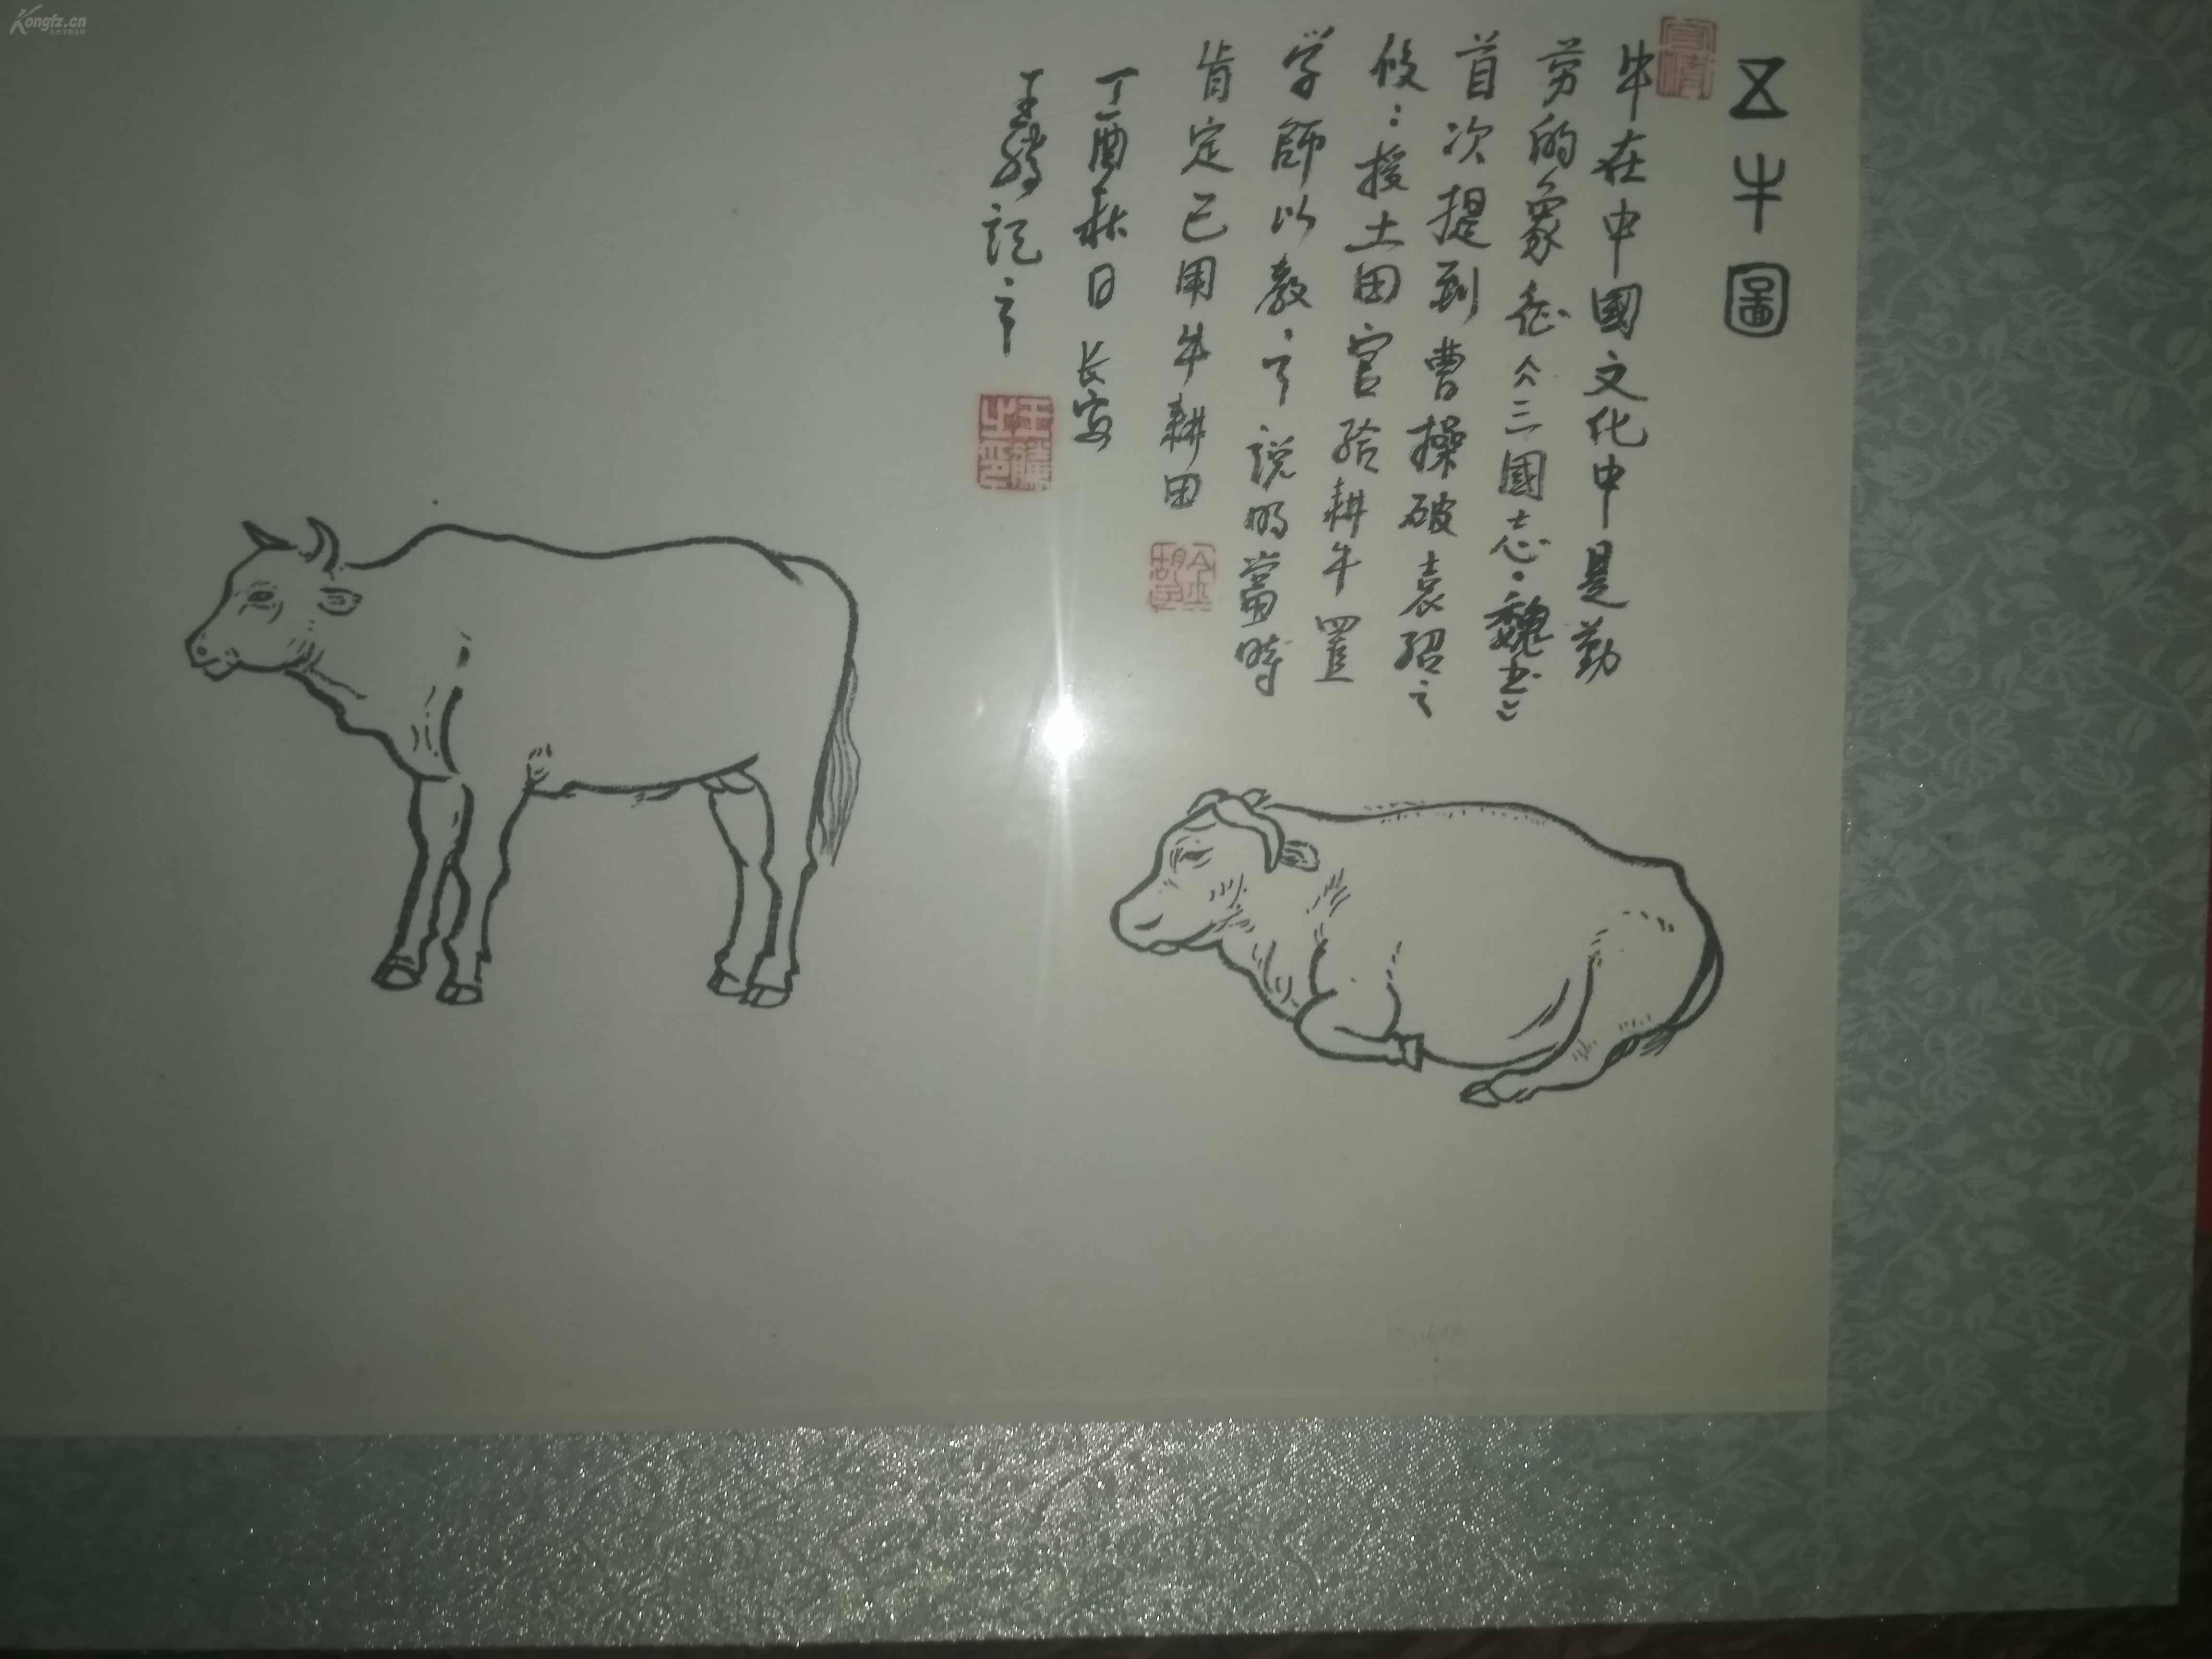 五牛圖
牛在中國文化中是勤
劳的象征《三國志·魏书》
首次提到曹操破袁绍之
後:授土田官给耕牛置
学師以教之説明當時
肯定已用牛耕田
丁酉秋日长安
王腾記之
Kongfz.cn